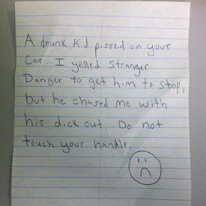 A drunk kid pissed on your
car. I yelled Stranger
Danger to get him to stop,
but he chased me with
his dick out. Do not
touch your handle.